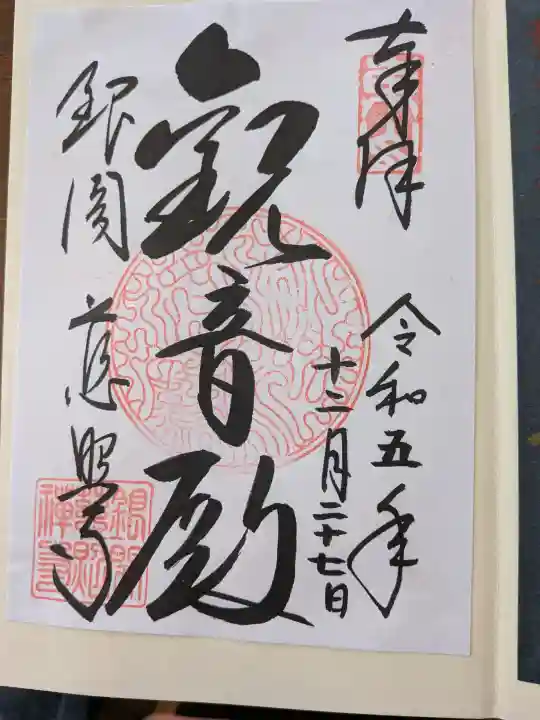 奉拝
令和五年
十二月二十七日
観音殿
銀閣 慈照寺